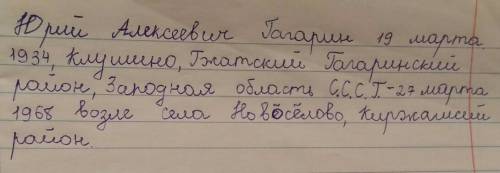 Юрий Алексеевич Гагарин 19 марта
1934, Клушино, Гжатский Гагаринский
район, Западная область С.С.С.Г-27 марта
1968 возле села Новосёлово, Киржагший
район.